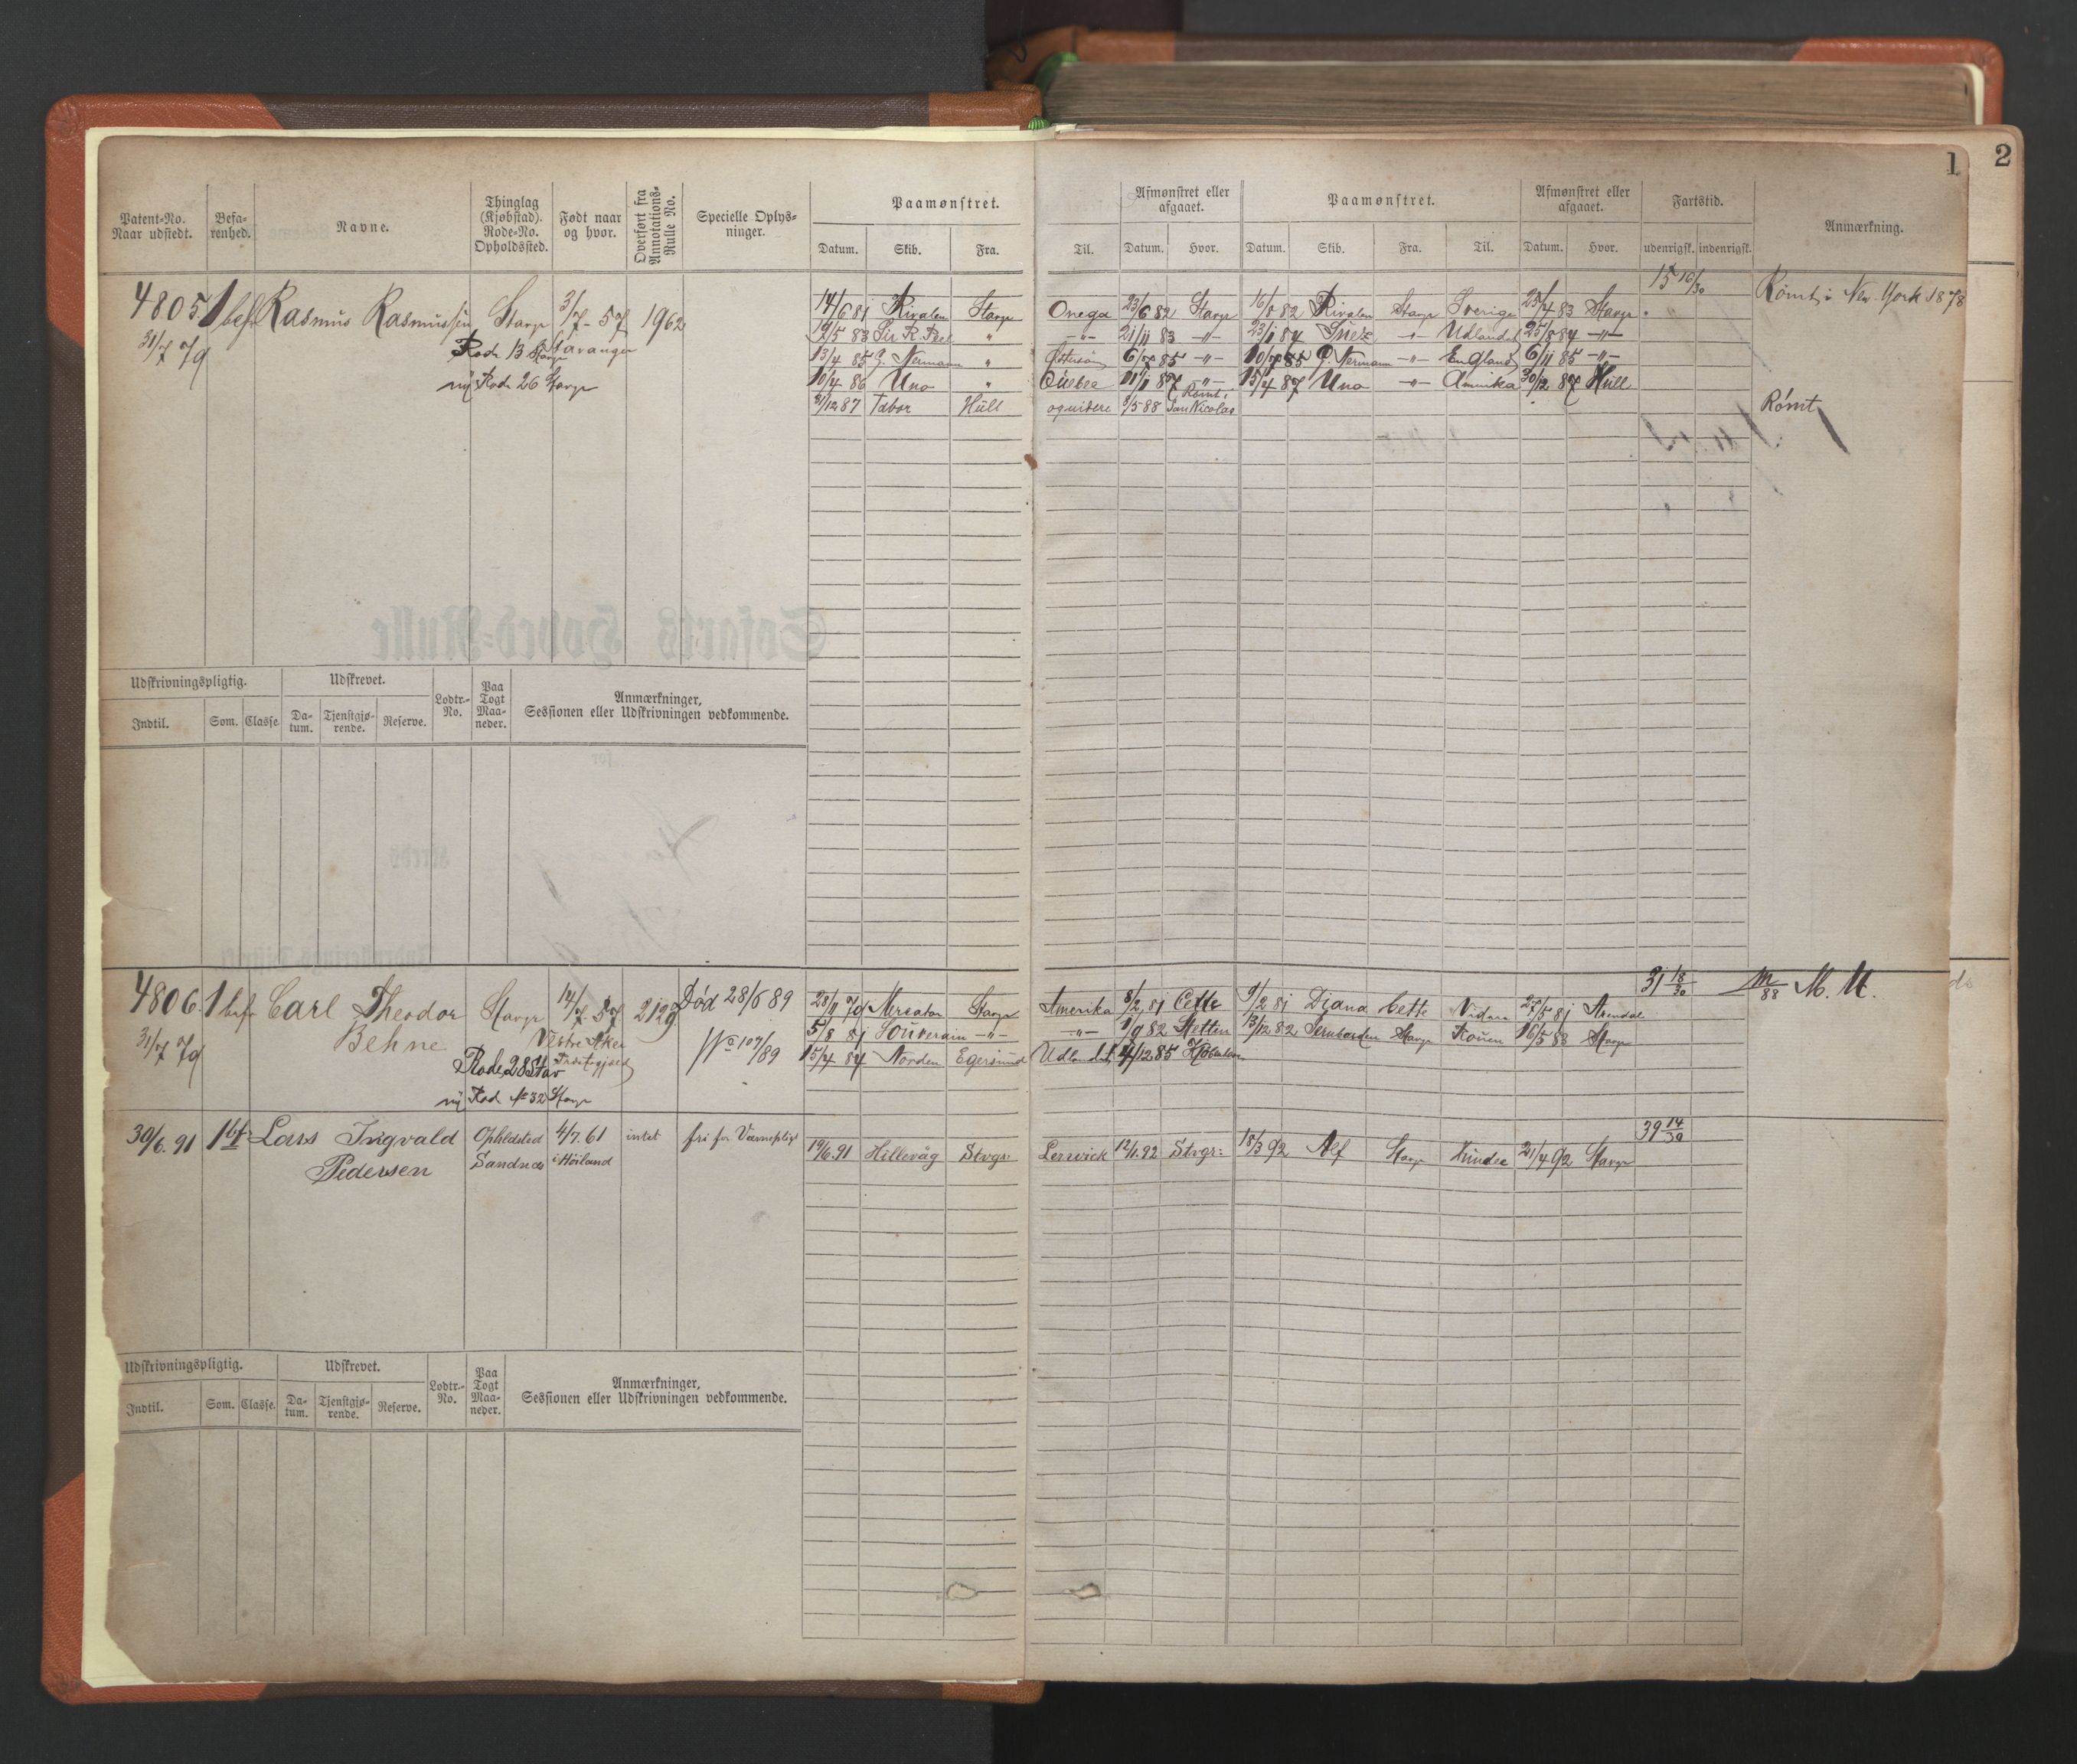 1
2
Patent-No. Naar udstedt.
Befarenhed.
Navne.
Thinglag (Kjøbstad). Rode-No. Opholdssted.
Født naar og hvor.
Overført fra Annotations-Rulle No.
Specielle Oplysninger.
Paamønstret.
Datum. Skib. Fra.
Til.
Afmønstret eller afgaaet.
Datum. Hvor.
Paamønstret.
Datum. Skib. Fra. Til.
Afmønstret eller afgaaet.
Datum. Hvor.
Fartstid.
udenrigsk. indenrigsk.
Anmærkning.
4805 1 bef. Rasmus Rasmussen Stavgr 3/7 57 1962
31/7 79 Rode 13 Stavgr Stavanger
ny Rode 26 Stavgr
15 16/30 Rømt i New York 1878
14/6 81 Rivalen Stavgr Onega 23/6 82 Stavgr 16/8 82 Rivalen Stavgr Sverige 25/4 83 Stavgr.
19/5 83 Sir R. Peel " -"- 21/11 83 -"- 23/1 84 Suez -"- Udlandet 25/8 84 -"-
13/4 85 J. Neumann " Østersøn 6/7 85 -"- 10/7 85 -"- England 6/11 85 -"-
10/4 86 Uno " Quebec 11/1 87 "- 15/4 87 Uno -"- Amerika 30/12 87 Hull
31/12 87 Tabor Hull og videre 8/5 88 Rømt San Nicolas Rømt
Udskrivningspligtig.
Indtil. Som. Classe.
Udskrevet.
Datum. Tjenstgjørende. Reserve.
Lodtr.-No.
Paa Togt Maaneder.
Anmærkninger, Sessionen eller Udskrivningen vedkommende.
4806. 1 bef. Carl Theodor Stavgr 14/7 57 2129 Død 28/6 89
31/7 79 Behne Vestre Aker No 109/89
Rode 28 Stav
ny Rod No 32 Stavgr
31 18/30 M/88 M. U.
28/11 79 Mercator Stavgr Amerika 8/2 81 Cette 9/2 81 Diana Cette 27/5 81 Arendal
5/8 81 Souverain -"- -"- 1/9 82 Stettin 13/12 82 Stavgr Rouen 16/5 83 Stavgr
15/4 84 Norden Egersund Udlandet 4/12 85
30/6. 91 1 bf. Lars Ingvald Opholdsted 4/7. 61 intet fri for Værnepligt
Pedersen Sandnæs i Høiland
39 14/30
19/6. 91 Hillevåg Stvgr: Lerwick 12/1. 92 Stvgr: 18/3 92 Alf Stavgr 21/4 92 Stavgr
Udskrivningspligtig.
Indtil. Som. Classe.
Udskrevet.
Datum. Tjenstgjørende. Reserve.
Lodtr.-No.
Paa Togt Maaneder.
Anmærkninger, Sessionen eller Udskrivningen vedkommende.